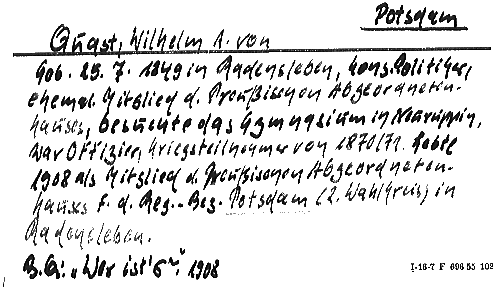 Potsdam
Quast, Wilhelm A. von
Geb. 25. 7. 1849 in Radensleben, kons. Politiker,
ehemal. Mitglied d. Preußischen Abgeordneten-
hauses, besuchte das Gymnasium in Neuruppin,
war Offizier, Kriegsteilnehmer von 1870/71. Lebte
1908 als Mitglied d. Preußischen Abgeordneten-
hauses f. d. Reg.-Bez. Potsdam (2. Wahlkreis) in
Radensleben.
B. Qu. „Wer ist's“. 1908
I-16-7 F 696 55 103